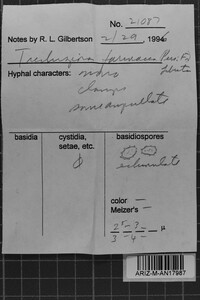 No. 21087
Notes by R. L. Gilbertson 2/29, 1996
Trechispora farinacea (Pers.: Fr.)
Liberta
Hyphal characters:
clamps
some ampullate
basidia
cystidia,
setae, etc.
basidiospores
echinulate
color —
Melzer's —
ARIZ-M-AN17987